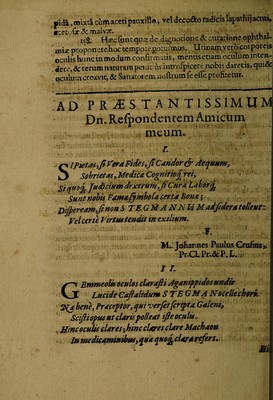 pidâ, mixtâ cùm aceti pauxillo, vel decocto radicis lapathi jacuti,
&c. & malvæ.
138. Hæc sunt quæ de dignotione & curatione ophthal-
miæ proponere hoc tempore potuimus. Utinam verò corporeis
oculis hunc in modum confirmatis, mentis etiam oculum inten-
dere, & rerum naturam penitùs introspicere nobis daretis, qui &
oculum creavit, & Sanatorem nostrum se esse profitetur.
AD PRÆSTANTISSIMUM
Dn. Respondentem Amicum
meum.
I.
SI Pietas, si Vera Fides, si Candor & Aequum,
Sobrietas, Medica Cognitioq́ rei,
Si quoq́, Judicium dextrum, si Cura Laborq́,
Sunt nobis Fama symbola certa Bona;
Dispeream, si non STEGMANNUM ad sidera tollent:
Vel certè Virtus tendit in exilium.
F.
M. Johannes Paulus Crusius,
Pr. Cl. Pr. & P. L.
II.
GEmmeolis oculos clarasti Aganippidos undis
Lucide Castalidum STEGMA Nocelle chori.
Na benè, Præceptor, qui verset scripta Galeni,
Scistiopus ut claris polleat iste oculis.
Hinc oculis clares; hinc clares clare Machaon
In medicaminibus, qua quoq́, clara refers.